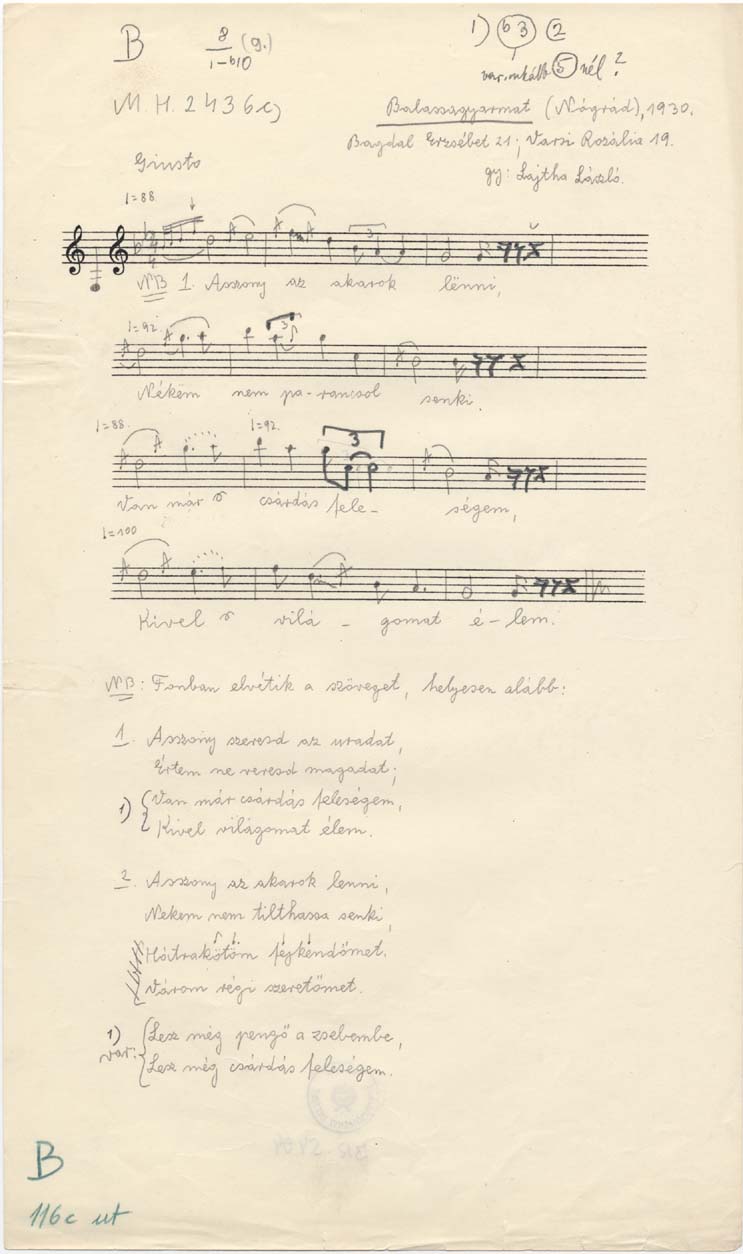 B 8 (9.) 1) b3 2
1-b10 var. inkább 5 nél?
M. H. 2436c) Balassagyarmat (Nógrád), 1930.
Bagdal Erzsébet 21; Varsi Rozália 19.
Giusto gy: Lajtha László.
♩=88
3
NB 1. Asszony az akarok lënni,
♩=92.
3
Nékëm nem pa-rancsol senki.
♩=88. ♩=92.
3
Van már csárdás fele- ségem,
♩=100
Kivel vilá - gomat é-lem.
NB: Fonban elvétik a szöveget, helyesen alább:
1. Asszony szeresd az uradat,
Értem ne veresd magadat;
1) Van már csárdás feleségem,
Kivel világomat élem.
2. Asszony az akarok lenni,
Nekem nem tilthassa senki,
Hátrakötöm fejkendőmet,
Várom régi szeretőmet.
1) Lesz még pengő a zsebembe,
var. Lesz még csárdás feleségem.
B
116c ut